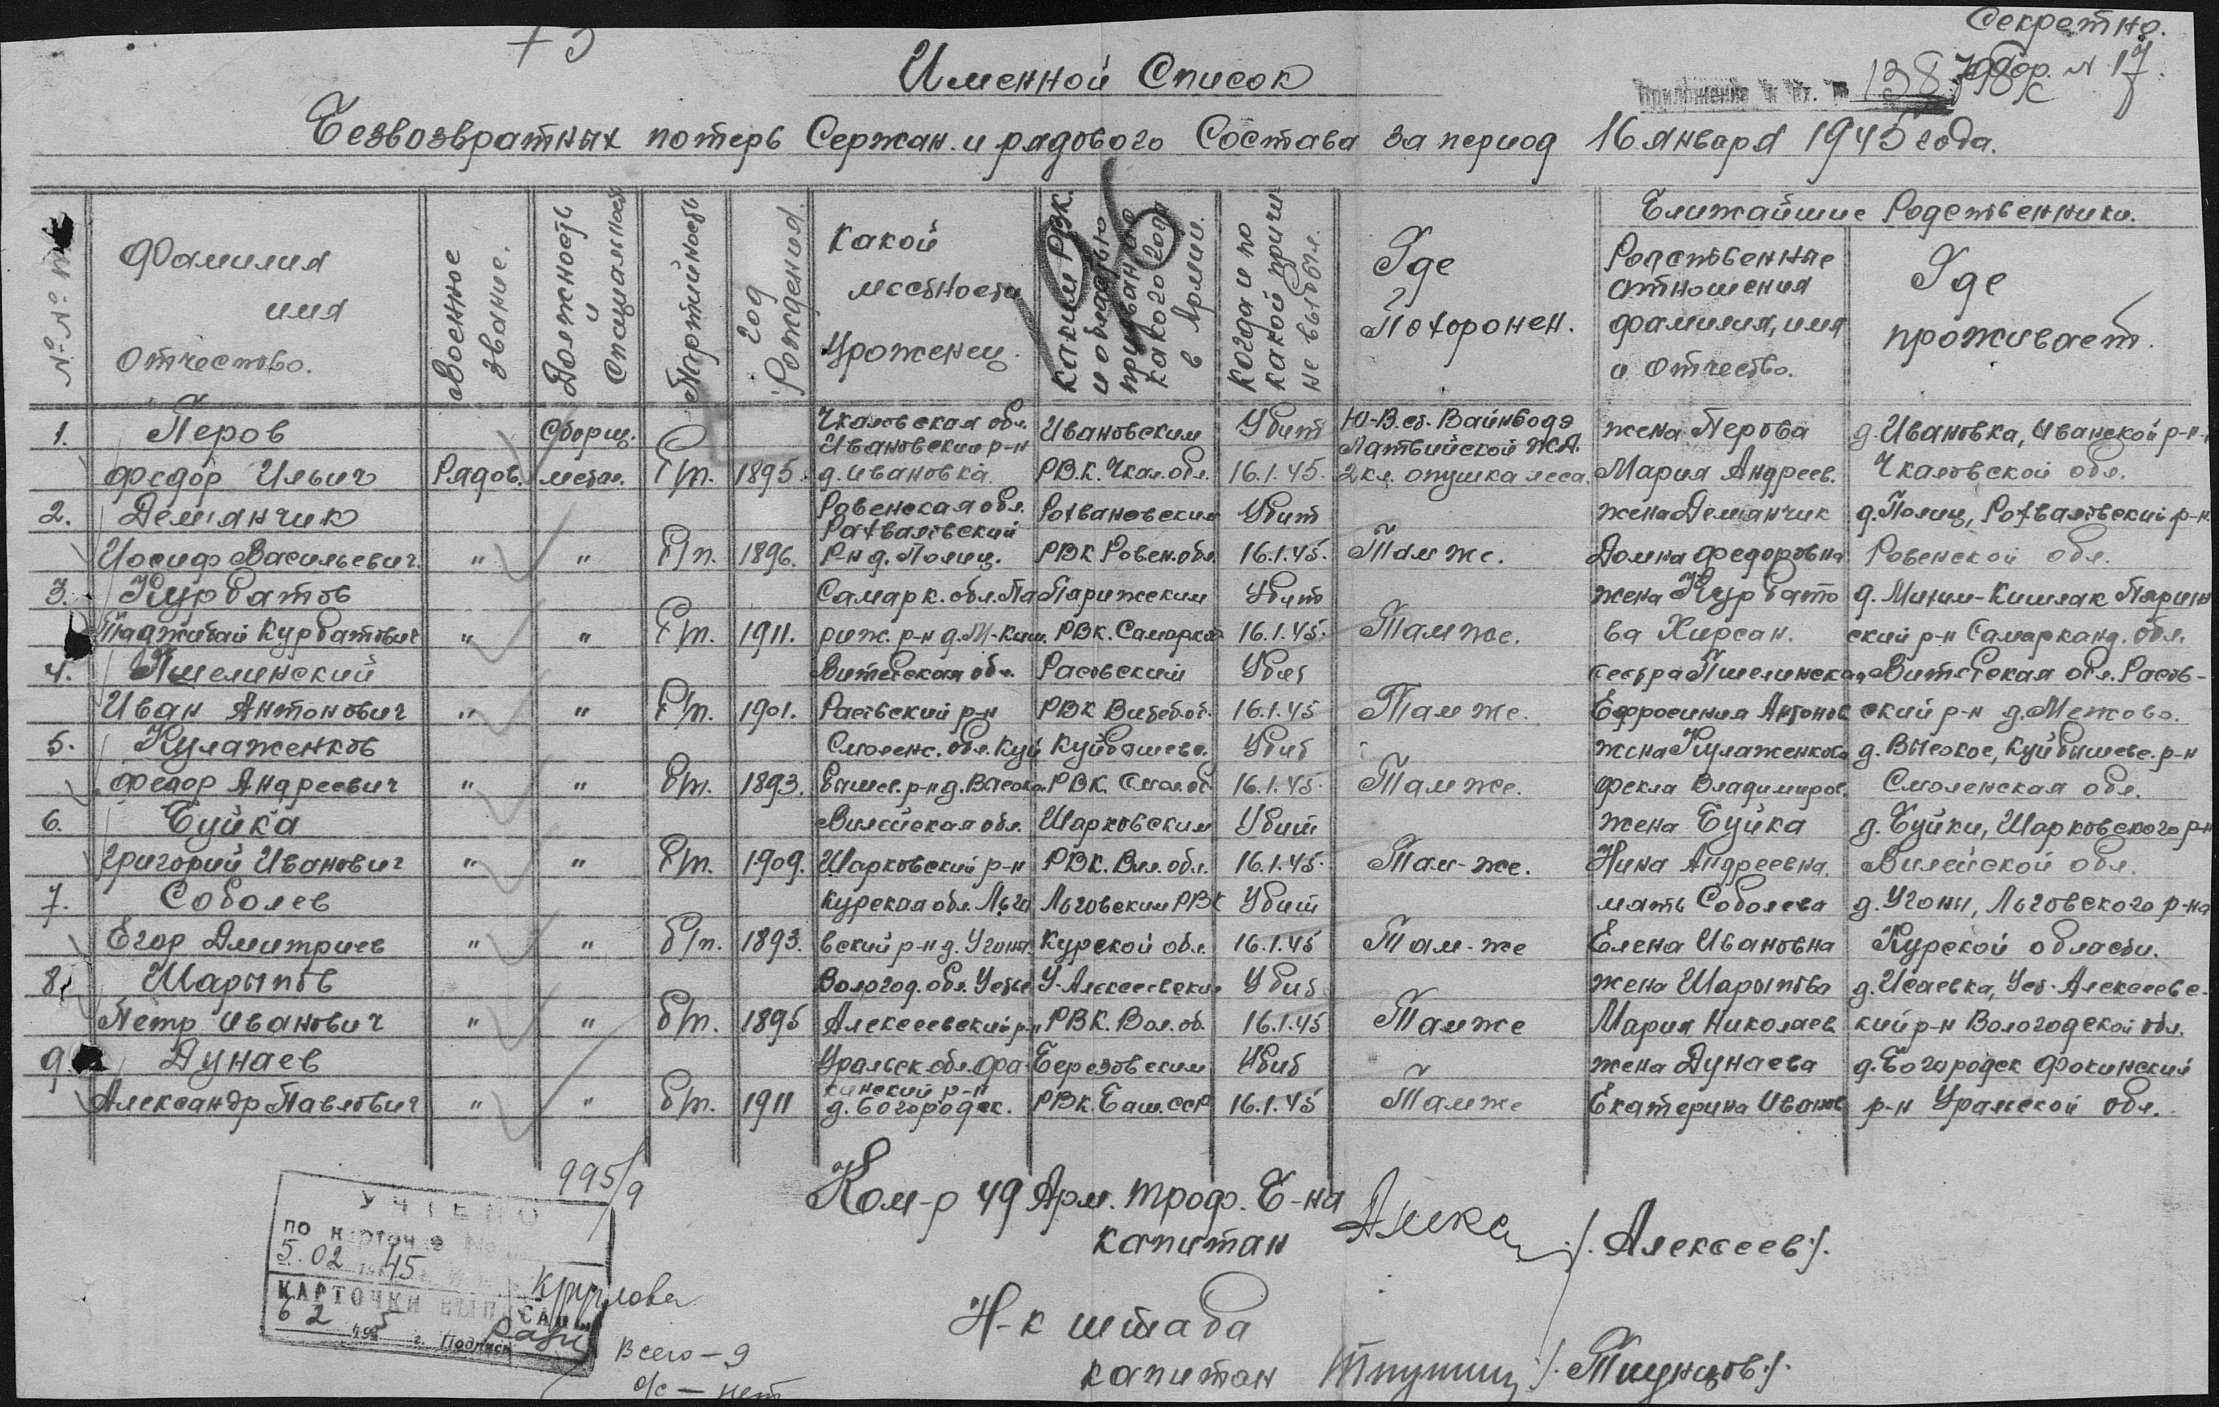 Секретно.
Именной Список
Приложение к вх. 138
Безвозвратных потерь Сержан. и рядового Состава за период 16 января 1945 года.
№№ пп
Фамилия имя отчество.
Военное звание.
Должность и специальность
Партийность
Год рождения.
Какой местности уроженец.
Каким РВК. и областью призван и какого года в Армии.
Когда и по какой причине выбыл.
Где Похоронен.
Ближайшие Родственники.
Родственные отношения фамилия, имя и отчество.
Где проживает.
1. Перов Сборщ. Чкаловская обл. Ивановский р-н Ивановским Убит Ю-В. ст. Вайнводэ Латвийской ж.д. жена Перова д. Ивановка, Иванской р-н
Федор Ильич Рядов. метал. б/п. 1895. д. Ивановка. РВ.К. Чкал. обл. 16.1.45. 2 кл. опушка леса. Мария Андреев. Чкаловской обл.
2. Демянчик Ровенская обл. Рафваловский Рофвановским Убит жена Демянчик д. Полиц, Рофваловский р-н
Иосиф Васильевич " " б/п. 1896. р-н д. Полиц. РВК Ровен. обл. 16.1.45. Там же. Домна Федоровна Ровенской обл.
3. Курбатов Самарк. обл. Па Парижским Убит жена Курбато д. Митим-Кишлак Париж
Таджибай Курбатович " " б/п. 1911. риж. р-н д. М-Киш. РВК. Самарканд 16.1.45. Там же. ва Хирсан. ский р-н Самарканд. обл.
4. Пшелинский Витебская обл. Расовский Убит сестра Пшелинская Витебская обл. Расов-
Иван Антонович " " б/п. 1901. Расовский р-н РВК Витеб. об. 16.1.45 Там же. Ефросиния Антонов ский р-н д. Межово.
5. Кулаженков Смоленс. обл. Куй Куйбашево. Убит жена Кулаженкова д. Высокое, Куйбышевс. р-н
Федор Андреевич " " б/п. 1893. бышев. р-н д. Высокое РВК. Смол. об. 16.1.45. Там же. Фекла Владимиров. Смоленская обл.
6. Буйка Вилейская обл. Шарковским Убит жена Буйка д. Буйки, Шарковского р-н
Григорий Иванович " " б/п. 1909. Шарковский р-н РВК. Вил. обл. 16.1.45. Там-же. Нина Андреевна. Вилейской обл.
7. Соболев Курская обл. Льго Льговским РВК Убит мать Соболева д. Угоны, Льговского р-на
Егор Дмитриев " " б/п. 1893. вский р-н д. Угоны. Курской обл. 16.1.45 Там-же Елена Ивановна Курской области.
8. Шарыпов Вологод. обл. Усть У-Алексеевским Убит жена Шарыпова д. Исаевка, Уст-Алексеевс.
Пётр Иванович " " б/п. 1895 Алексеевский р-н РВК. Вол. об. 16.1.45 Там же Мария Николаев кий р-н Вологодской обл.
9. Дунаев Уральск. обл. Фо- Березовским Убит жена Дунаева д. Богородск Фокинский
Александр Павлович " " б/п. 1911 кинский р-н д. Богородск. РВК. Баш. ССР 16.1.45 Там же Екатерина Иванов р-н Уральской обл.
995/9
Ком-р 49 Арм. троф. Б-на
капитан /. Алексеев./.
УЧТЕНО
по карточке №
5.02 45
Круглова
КАРТОЧКИ ВЫПИСАЛ
6 2 1945 г. Подпись
Н-к штаба
капитан /. Тиунцов./.
Всего – 9
о/с – нет